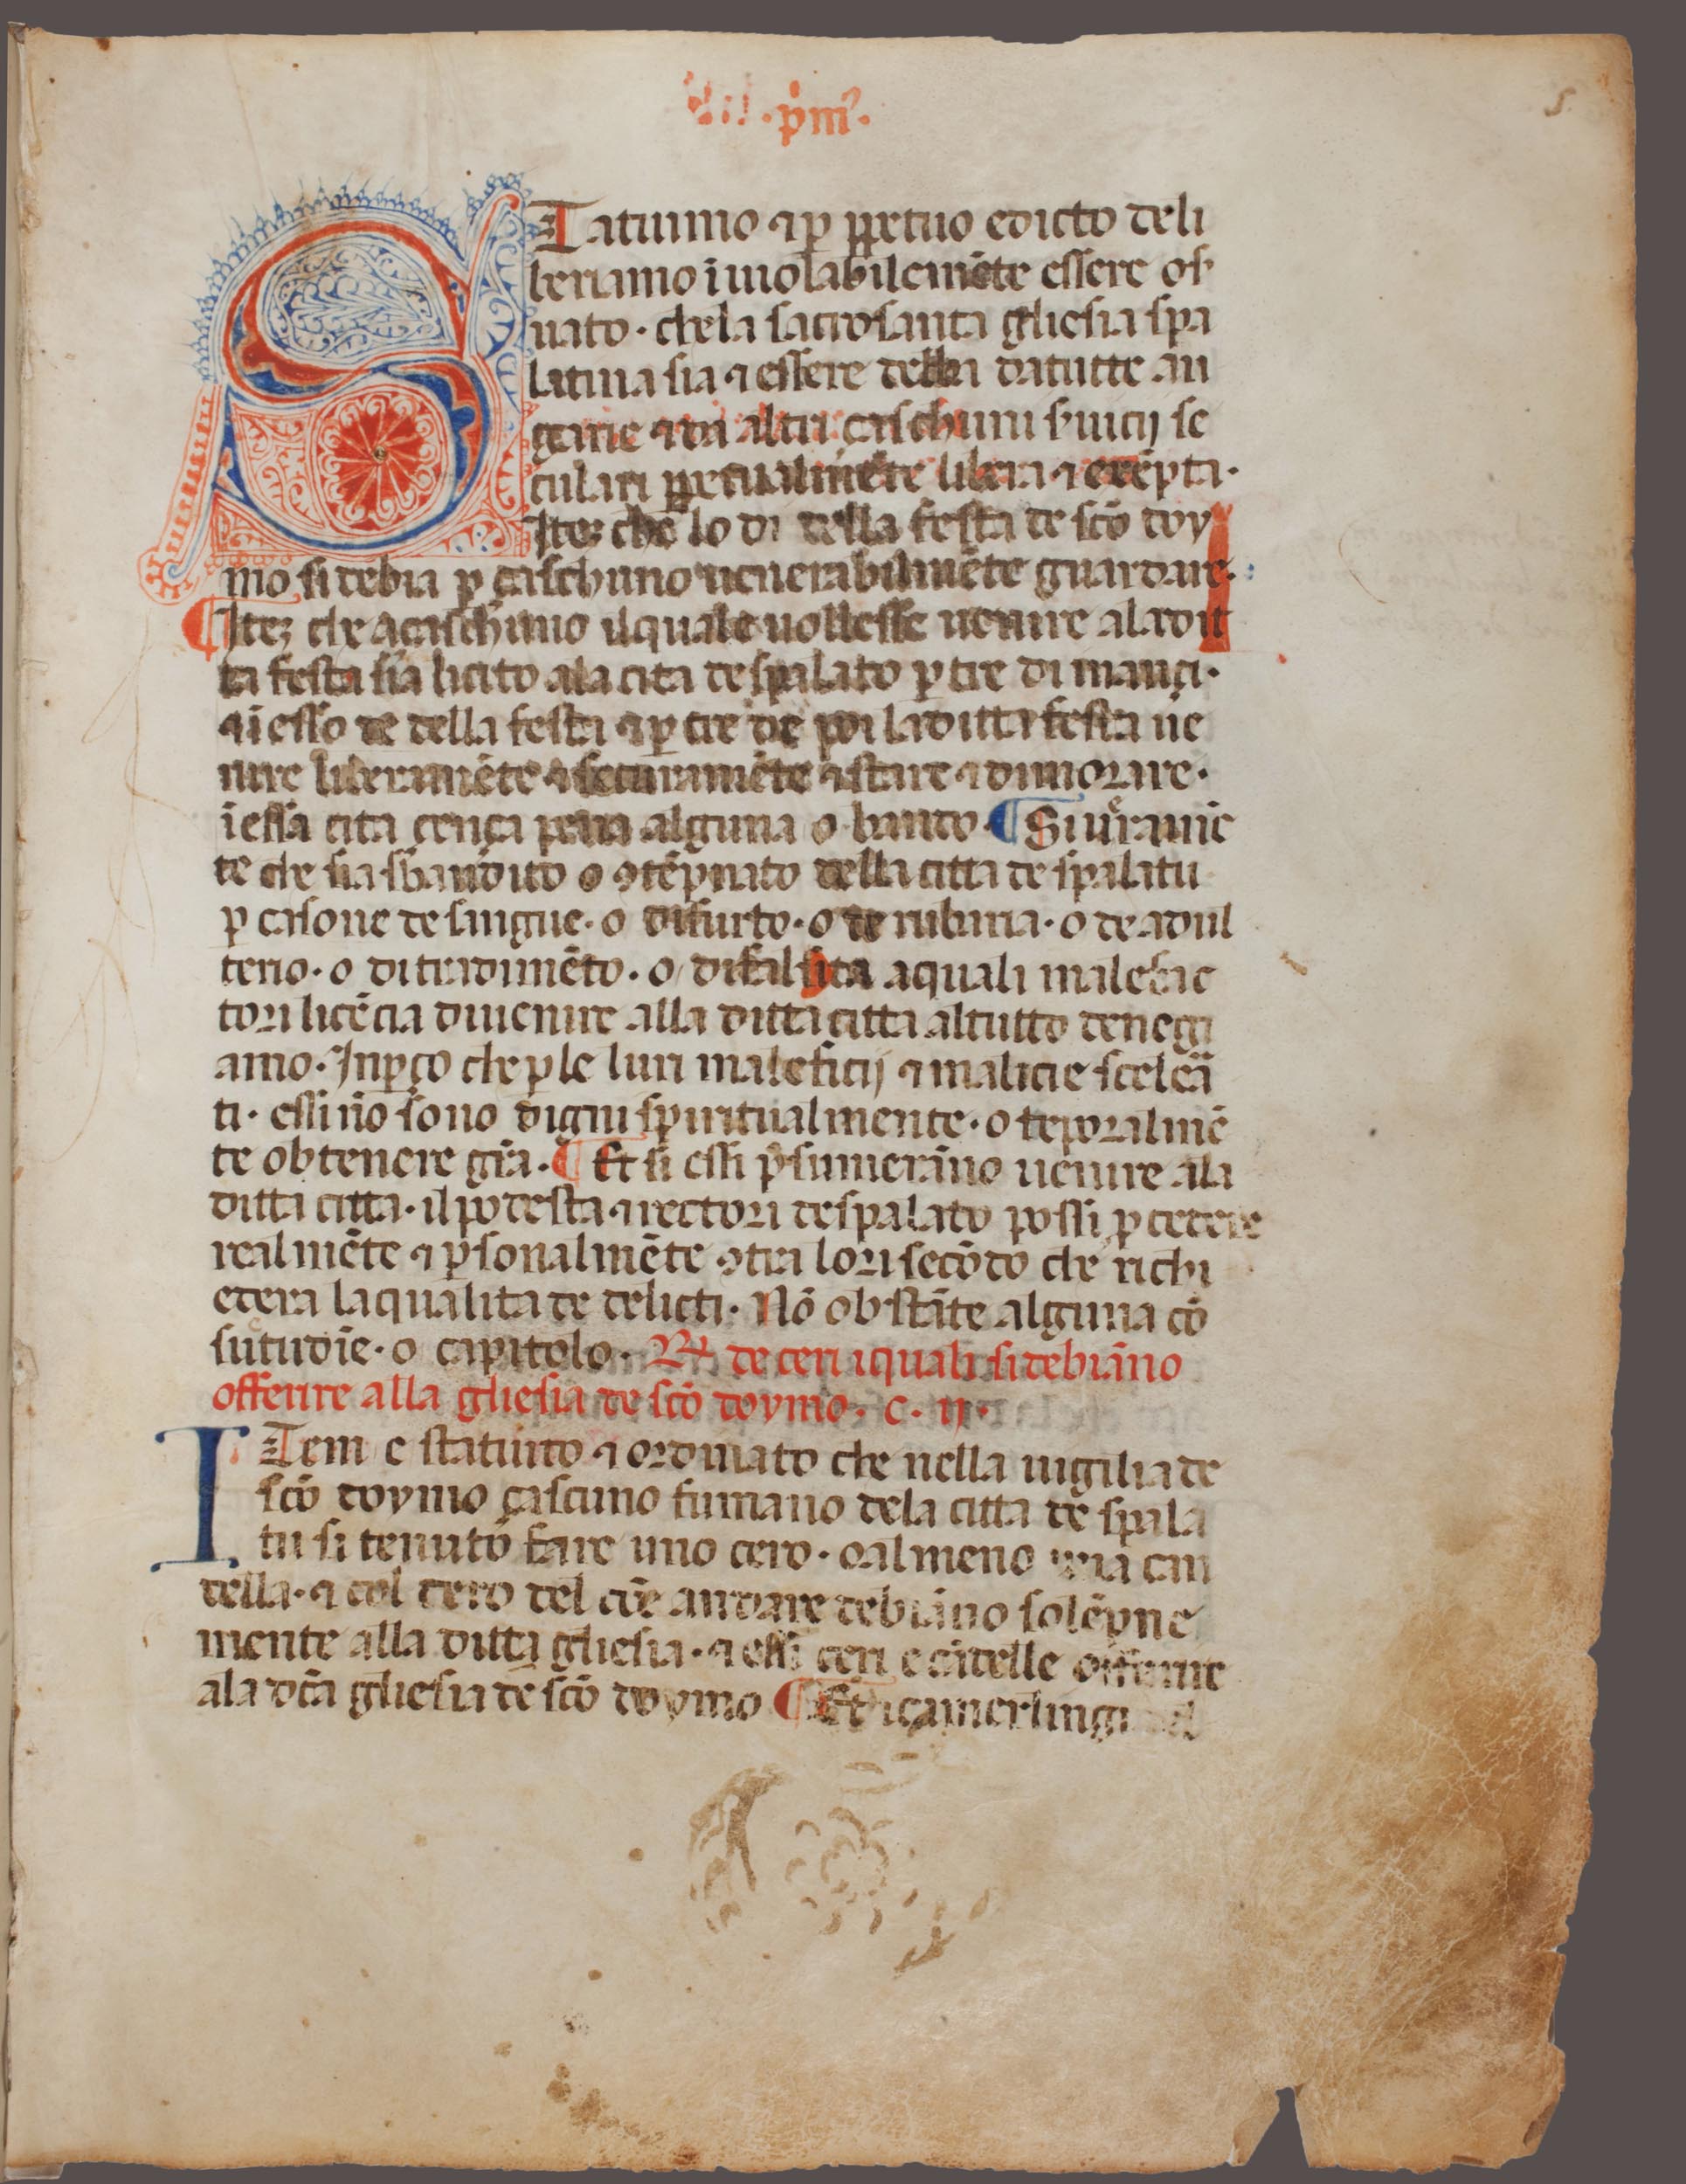 .pm̃.
STatuimo ⁊ p ppetuo edicto deli
beriamo īuiolabilemēte essere os̄
uato · che la sacrosanta ghiesia spa
latina sia ⁊ essere debia da tutte an
garie ⁊ da altri çaschuni s̄uicij se
culari ppetualmēte libera ⁊ exēpta ·
Iteꝫ che lo di della festa de sc̄o doy
mo si debia p çaschuno uenerabilmēte guardare ·
¶ Iteꝫ che a çaschuno il quale uollesse uenire ala dit
ta festa sia licito ala cita de spalato p tre di mançi ·
⁊ ī esso de della festa ⁊ p tre de poi la ditta festa ue
nire liberamēte ⁊ securamēte ⁊ stare ⁊ dimorare ·
ī essa cita çença pena alguna o bando · ¶ Si ueramē
te che sia sbandito o ꝯdēpnato della citta de spalatu
p casone de sangue · o di furto · o de rubaria · o de adul
terio · o di tradimēto · o di falsita a quali malefac
tori licēcia di uenire alla ditta citta al tutto denegi
amo · Inpço che p le luri maleficij ⁊ malicie scelerā
ti · essi nō sono digni spiritualmente · o teporalmē
te obtenere grā · ¶ Et si essi p̄sumerāno uenire ala
ditta citta · il podesta ⁊ rectori de spalato possi pcedere
realmēte ⁊ psonalmēte ꝯtra lori secōdo che richi
edera la qualita de delicti · Nō obstāte alguna cō
sutudīe · o capitolo · Rx de ceri i quali si debiāno
offerire alla ghiesia de sc̄o doymo · c · ij ·
ITem e statuito ⁊ ordinato che nella uigilia de
sc̄o doymo çascuno fumano dela citta de spala
tu si tenuto fare uno cero · o almeno una can
della · ⁊ col cero del cōe andare debiāno solēpne
mente alla ditta ghiesia · ⁊ essi ceri e cādelle offerire
ala dc̄a ghiesia de sc̄o doymo ¶ Et i çamerlingi